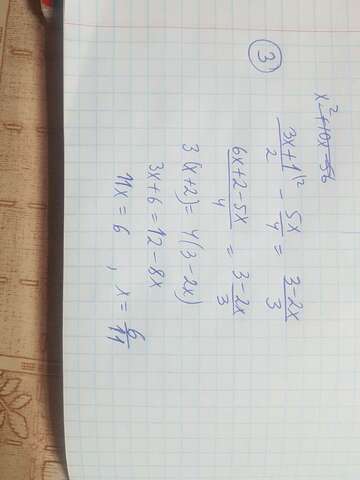 x²+10x-56
③
(3x+1)/2 \² - 5x/4 = (3-2x)/3
(6x+2-5x)/4 = (3-2x)/3
3(x+2) = 4(3-2x)
3x+6 = 12-8x
11x = 6 , x = 6/11